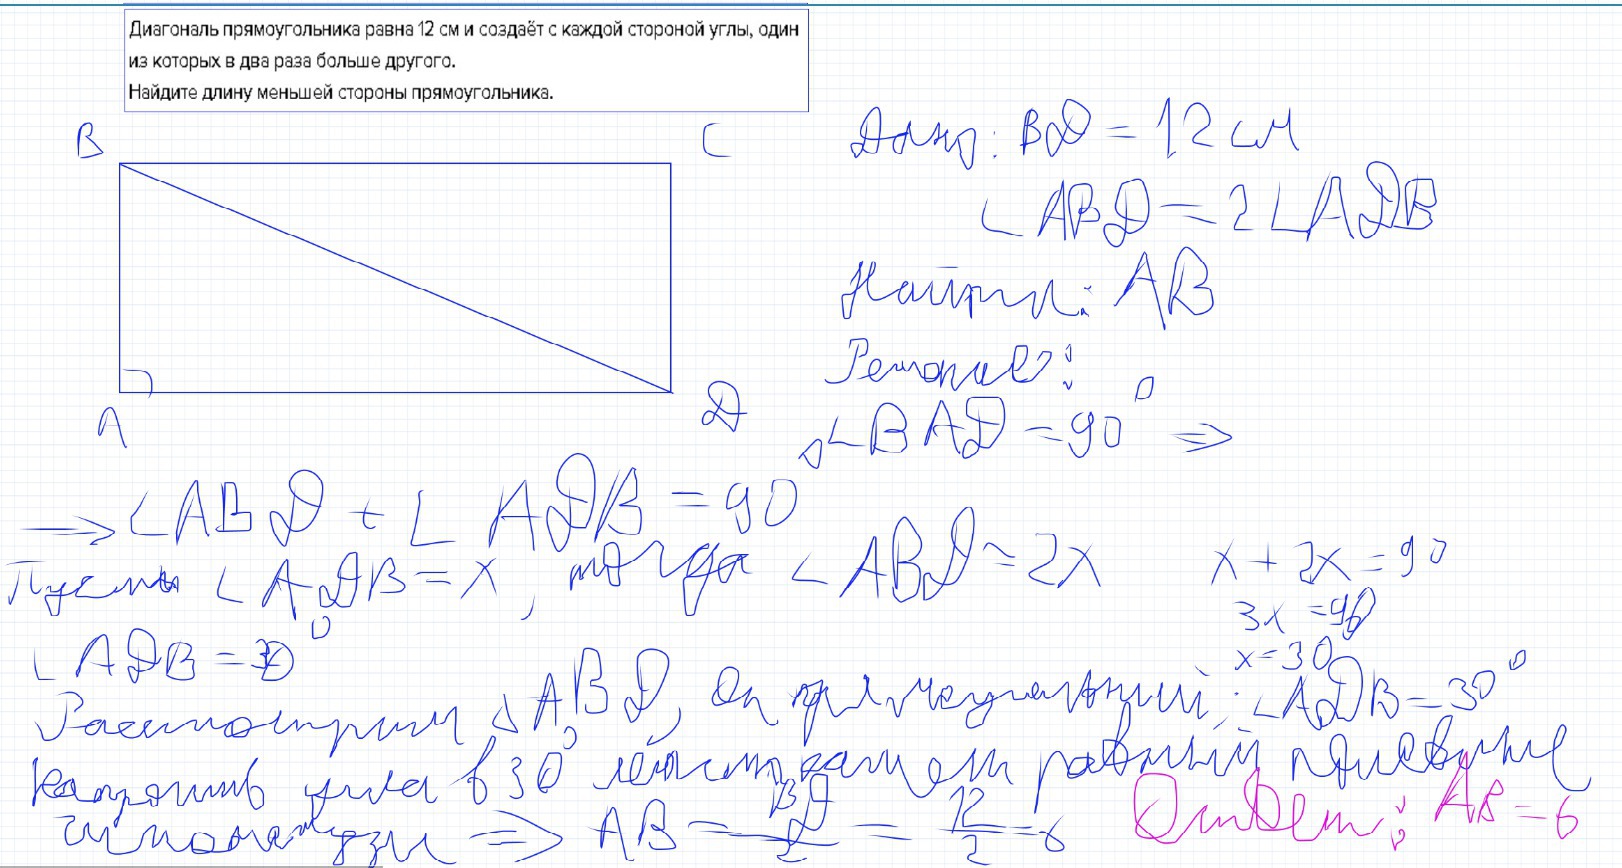 Диагональ прямоугольника равна 12 см и создаёт с каждой стороной углы, один
из которых в два раза больше другого.
Найдите длину меньшей стороны прямоугольника.
B C
Дано: BD = 12 см
∠ABD = 2∠ADB
Найти: AB
Решение:
A D
∠BAD = 90° ⇒
⇒ ∠ABD + ∠ADB = 90
Пусть ∠ADB = x, тогда ∠ABD = 2x x + 2x = 90
3x = 90
x = 30
∠ADB = 30°
Рассмотрим △ABD, он прямоугольный, ∠ADB = 30°
напротив угла в 30° лежит катет равный половине
гипотенузы ⇒ AB = BD/2 = 12/2 = 6
Ответ: AB = 6